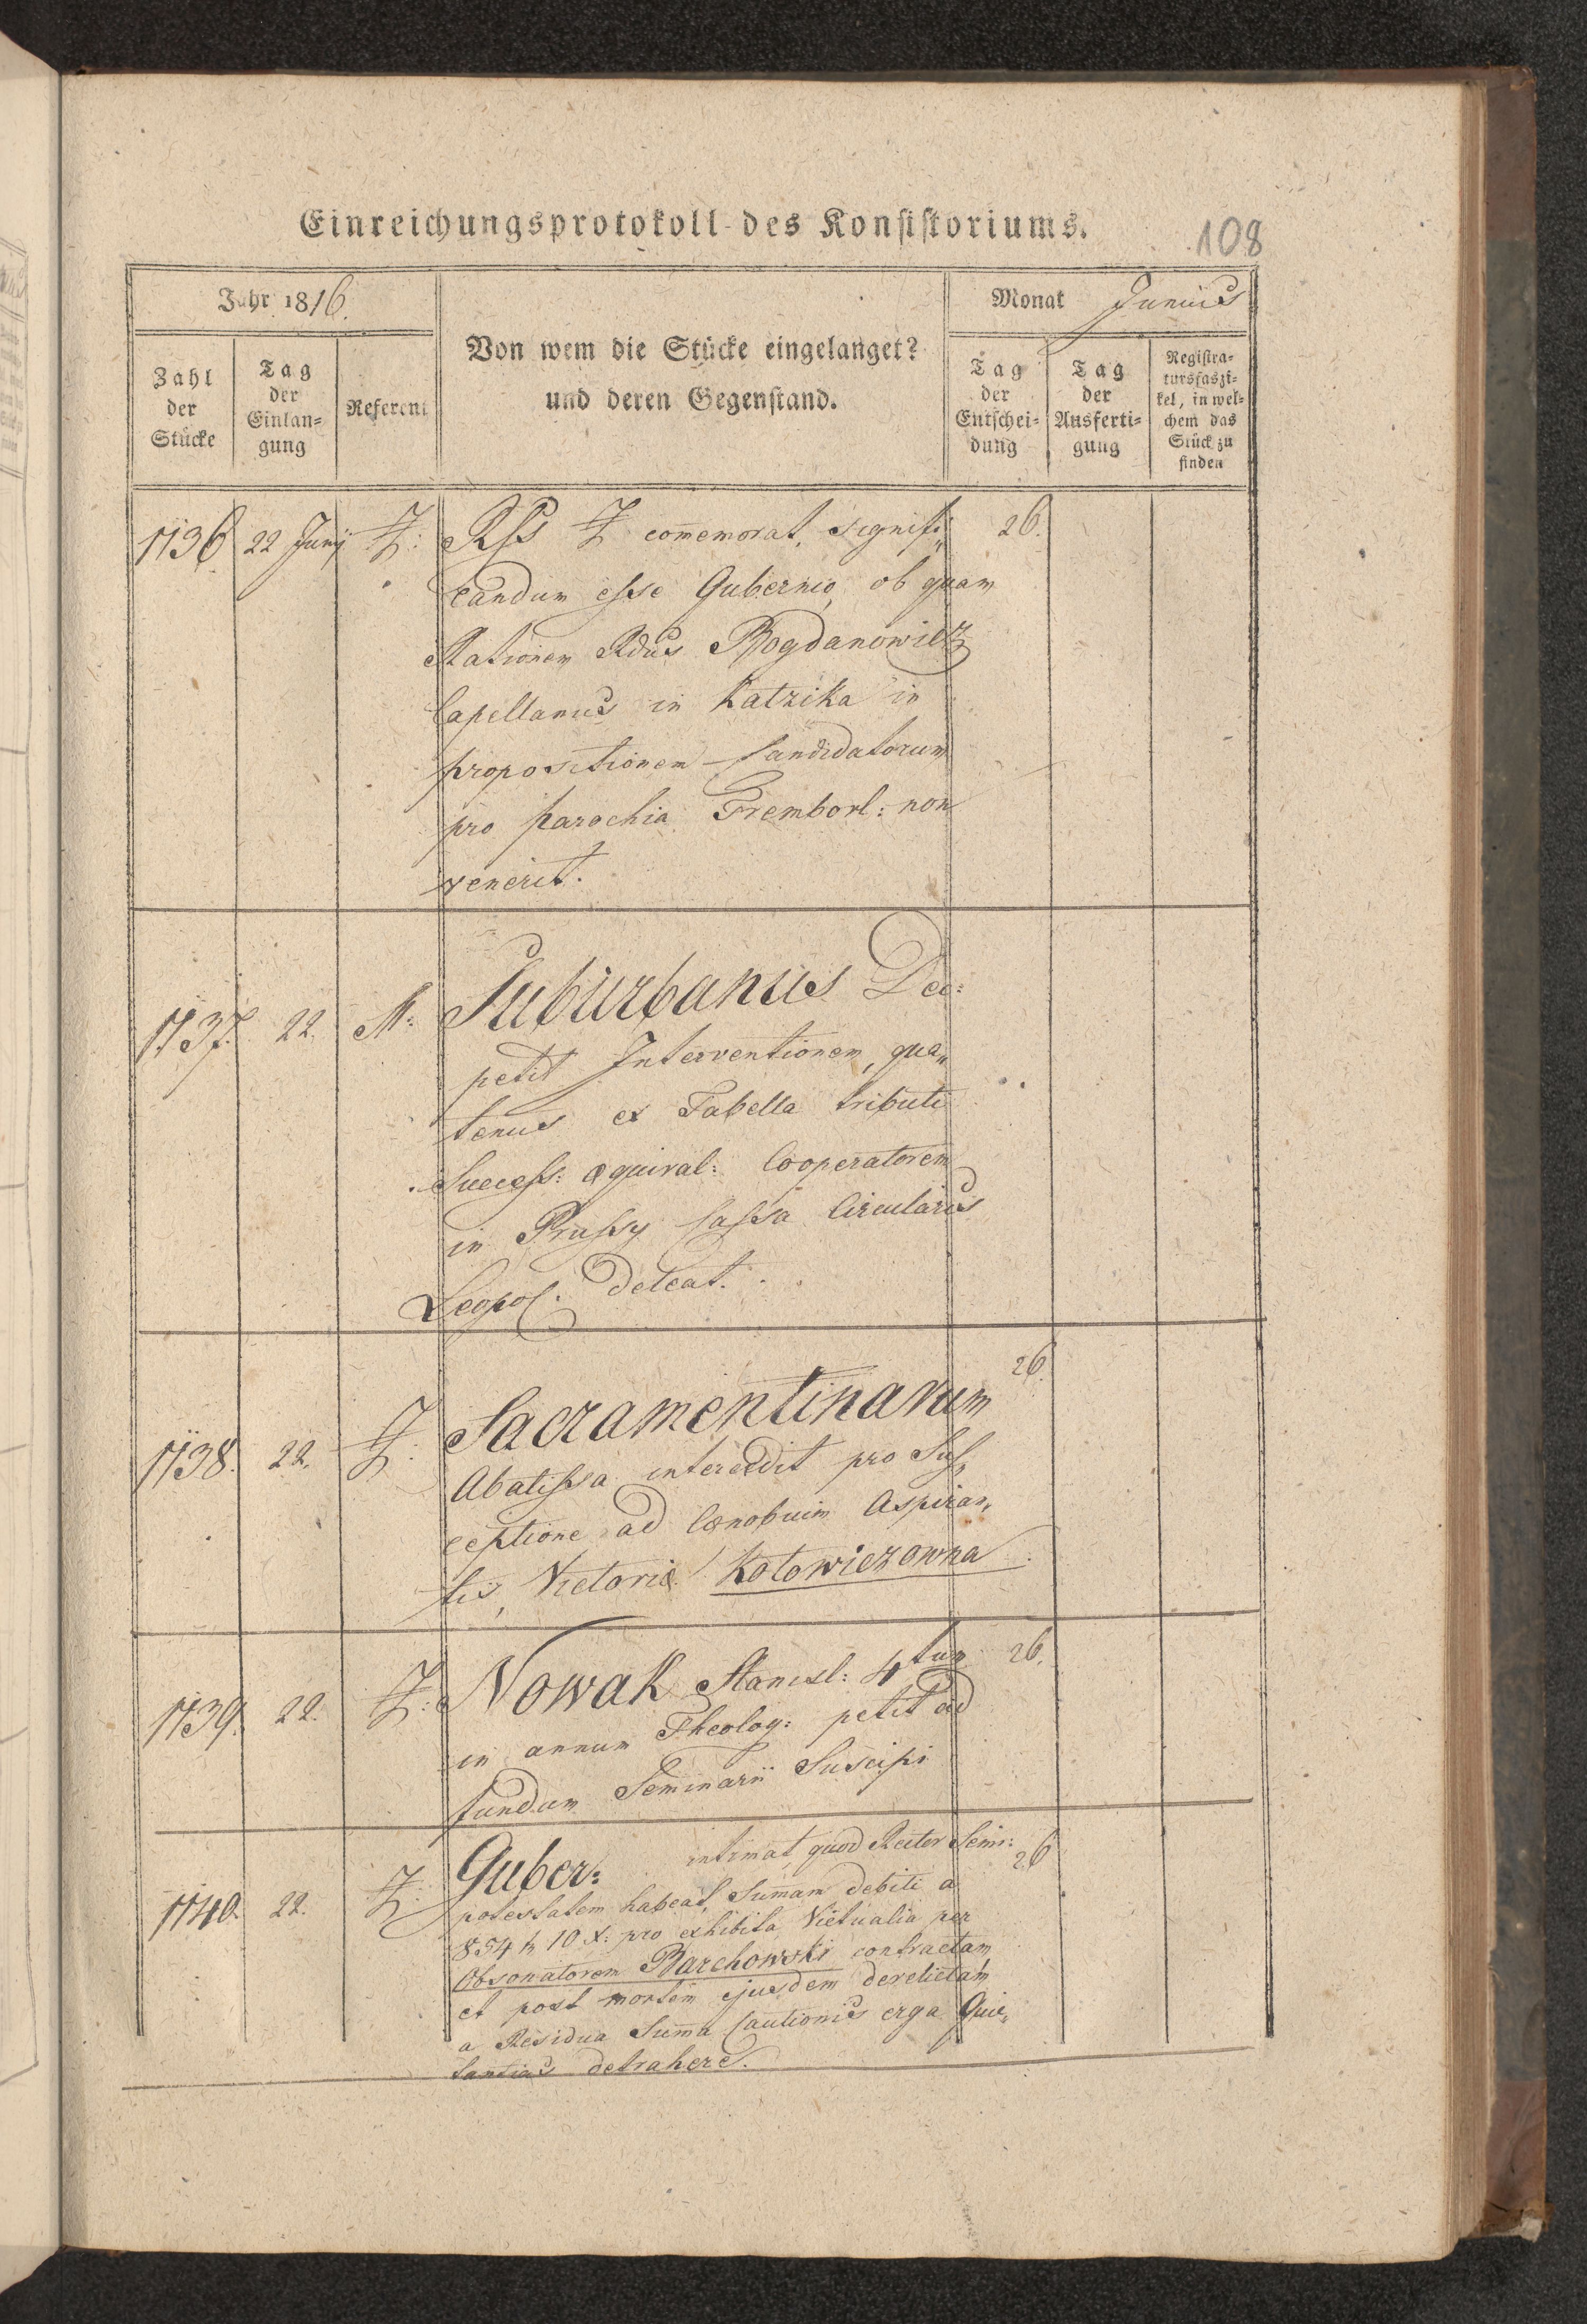 Einreichungsprotokoll des Konsistoriums.
108
Jahr 1816.
Monat Junius
Zahl der Stücke
Tag der Einlan=gung
Referent
Von wem die Stücke eingelanget?
und deren Gegenstand.
Tag der Entschei=dung
Tag der Ausferti=gung
Registra=tursfaszi=kel, in wel=chem das Stück zu finden
1136 22 Junij Z: Rss Z com̄emorat, signifi„ 26.
candum esse Gubernio, ob quam
Rationem Rdus Bogdanowicz
Capellanus in Katzika in
propositionem Candidatorum
pro parochia Trembovl: non
venerit.
1137. 22. M: Suburbanus Dec:
petit Interventionem, qua„
tenus ex Tabella tributi
Success: æquival: Cooperatorem
in Prussy Cassa Circularis
Leopol. deleat.
1138. 22. Z: Sacramentinarum 26.
Abatissa intercedit pro Sus„
ceptione ad Cœnobium Aspiran„
tis, Victoriæ Kotowiczowna
1139. 22. Z: Nowak Stanisl: 4tum 26.
in annum Theolog: petit ad
fundum Seminarii Suscipi
1140. 22. Z: Guber: intimat, quod Rector Semi: 26
potestatem habeat, Sum̄am debiti a
854 fr 10 x: pro exhibita Victualia per
Obsonatorem Barchowski contractam
et post mortem ejusdem derelictam
a Residua Sum̄a Cautionis erga Quie„
tantias detrahere.